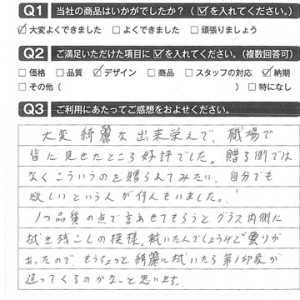 Q1 当社の商品はいかがでしたか？（☑を入れてください。）
☑大変よくできました □よくできました □頑張りましょう
Q2 ご満足いただけた項目に☑を入れてください。（複数回答可）
□価格 □品質 ☑デザイン □商品 □スタッフの対応 ☑納期
□その他（ ） □特になし
Q3 ご利用にあたってご感想をおよせください。
大変綺麗な出来栄えで、職場で
皆に見せたところ好評でした。贈る側では
なくこういうのを贈られてみたい、自分でも
欲しいという人が何人もいました。
1つ品質の点で言わせてもらうとグラス内側に
拭き残しの模様、拭いたんでしょうけど曇りが
あったので、もうちょっと綺麗に拭いたら第1印象が
違ってくるのかなーと思います。